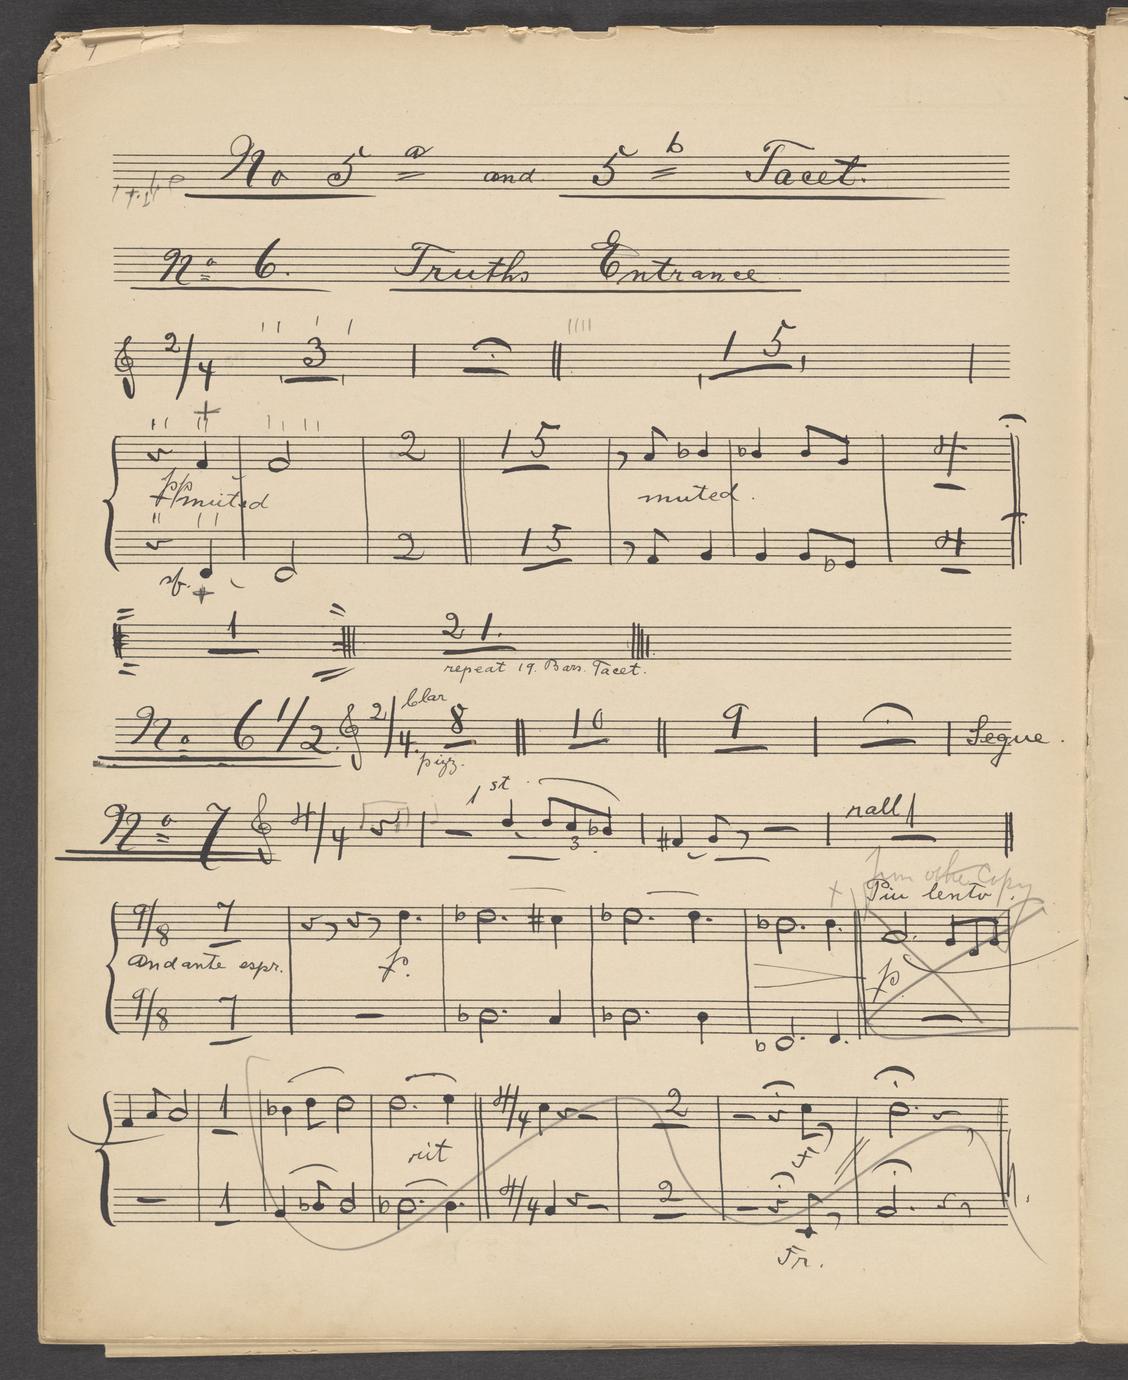 No 5 a and 5 b Tacet.
No 6. Truths Entrance
2/4 3 15
2 15 4
pp muted muted.
2 15 4
sf.
1 21.
repeat 19. Bars. Tacet.
No 6 1/2. 2/4 Clar 8 10 9 Segue.
pizz.
1st
No 7 4/4 3 rall
from other Copy
Piu lento.
9/8 7
Andante espr. p. p
9/8 7
1 4/4 2
rit
1 4/4 2
Tr.